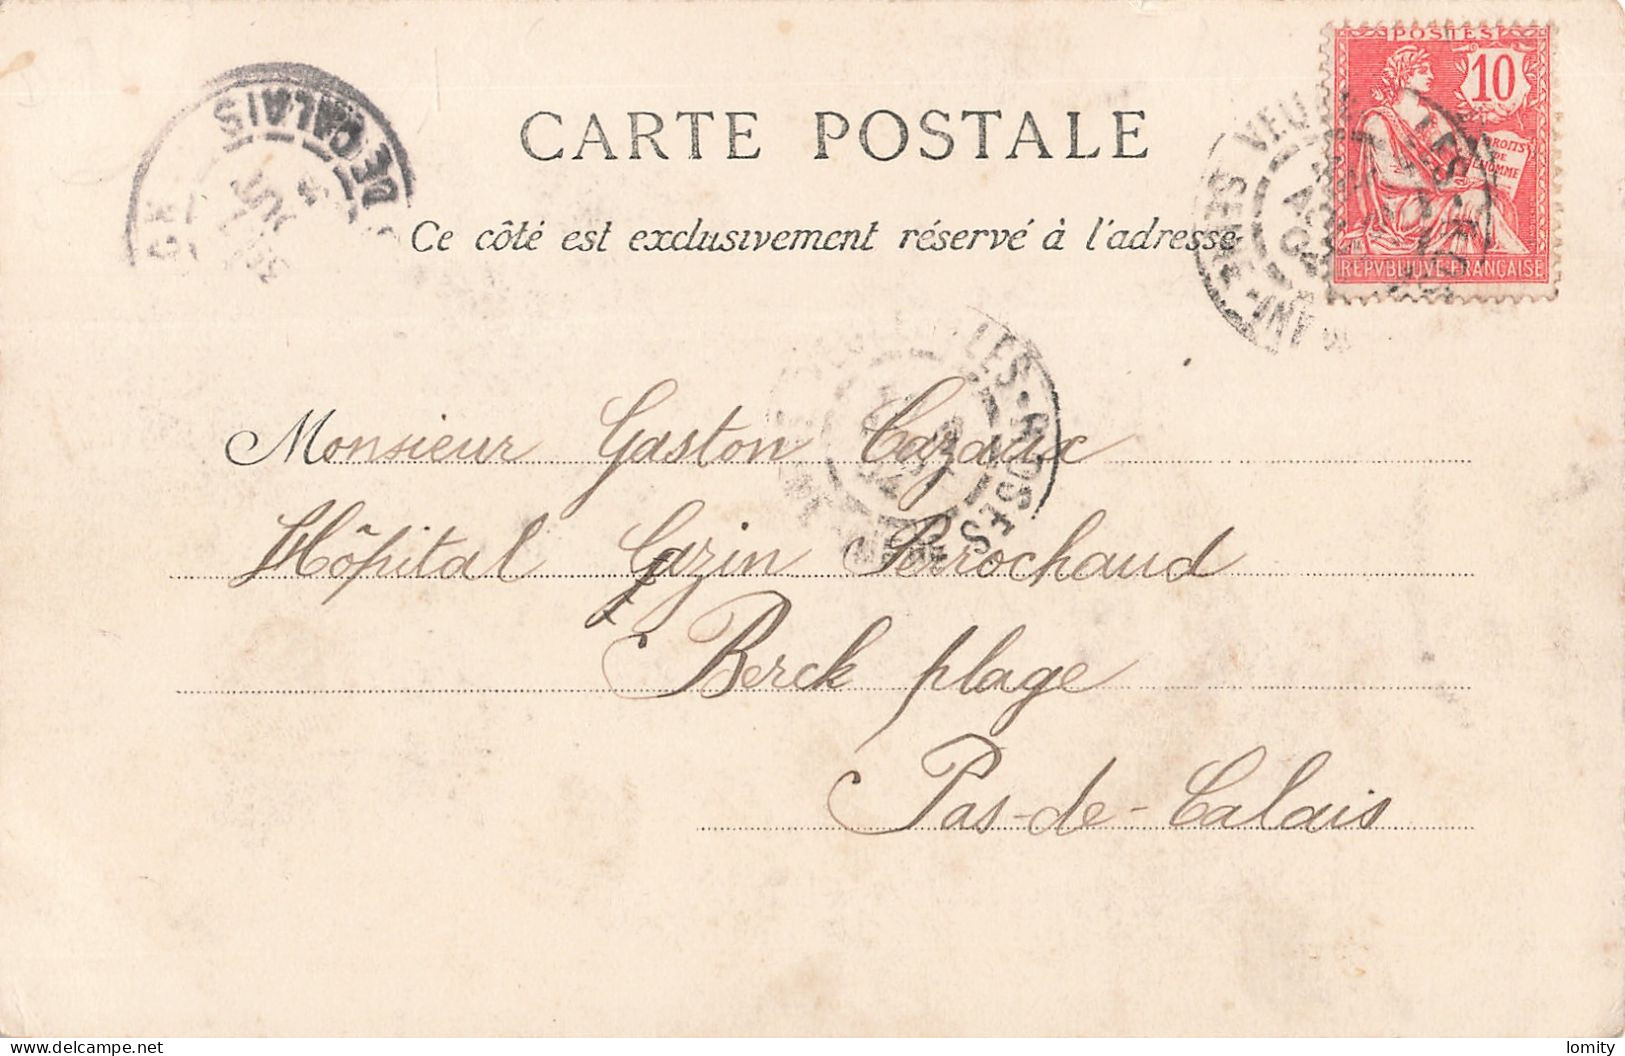 POSTES
10
DROITS
DE
L'HOMME
REPVBLIQVE FRANÇAISE
DE CALAIS
CARTE POSTALE
Ce côté est exclusivement réservé à l'adresse
LES-ROSES
Monsieur Gaston Cazaux
Hôpital Cazin Perrochaud
Berck plage
Pas-de-Calais
lomity